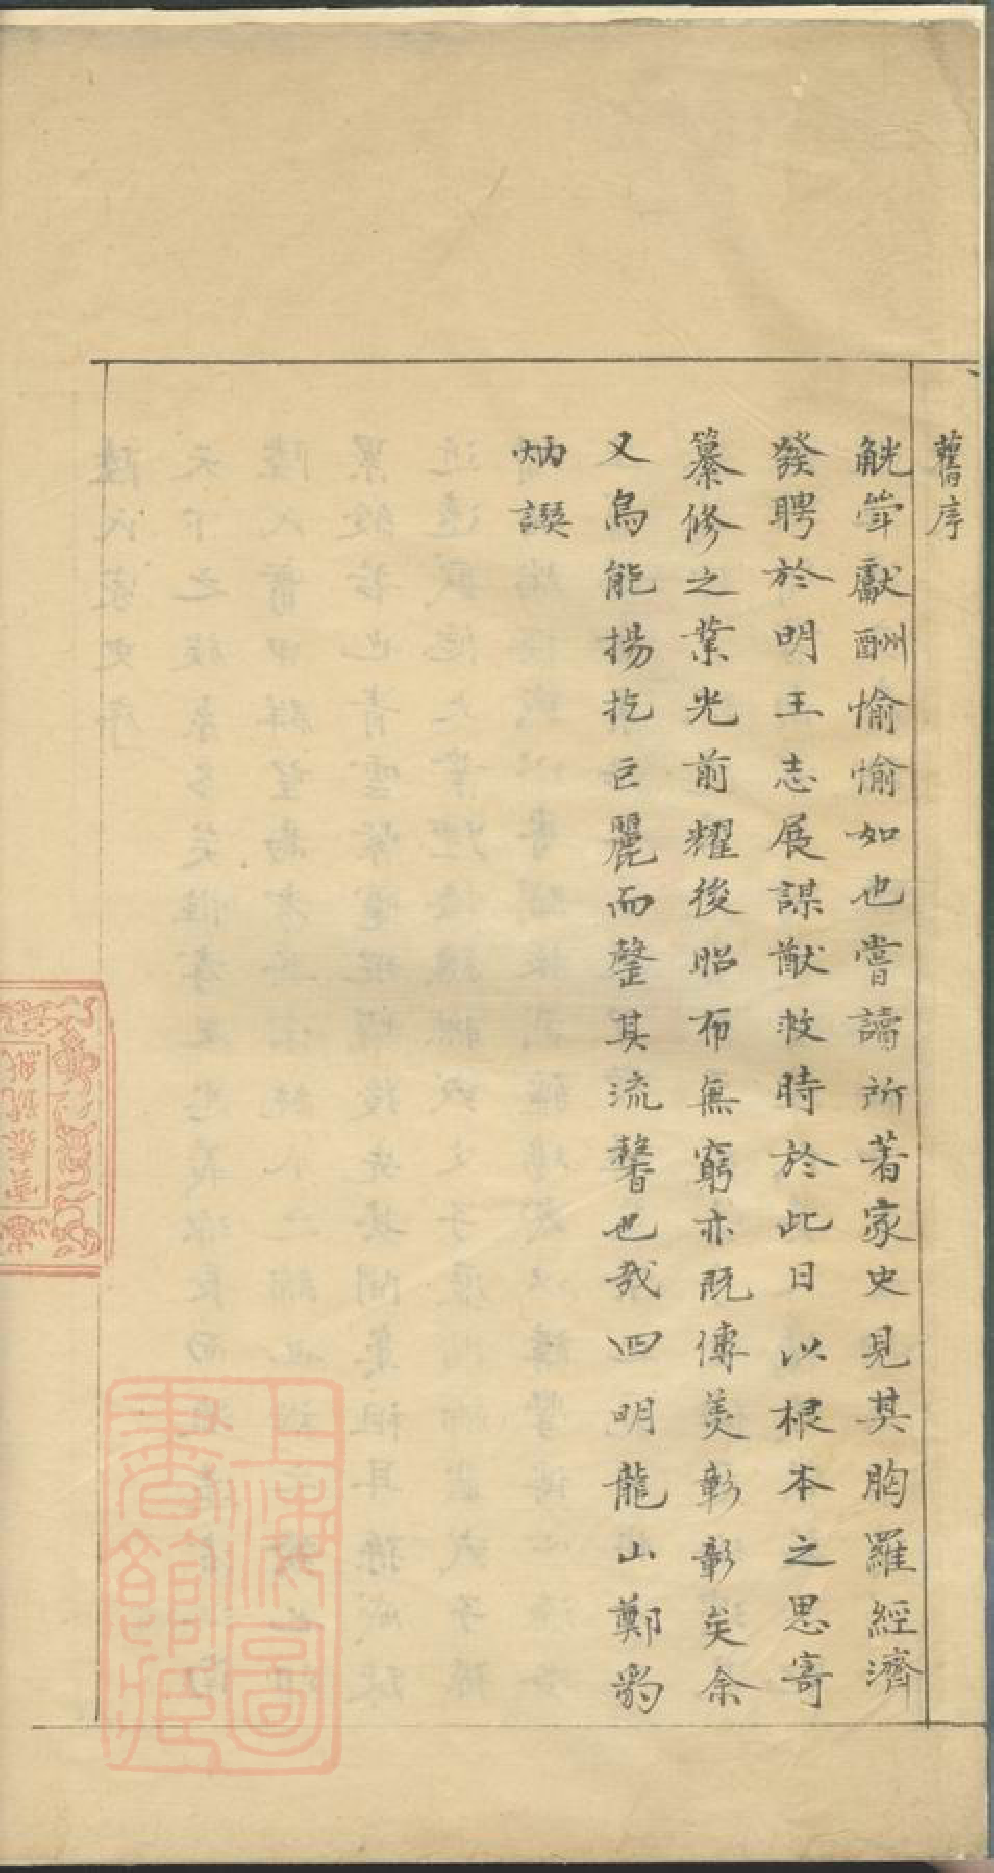 舊序
觥觶獻酬愉愉如也嘗讀所著家史見其胸羅經濟
發聘於明王志展謀猷救時於此日以根本之思寄
纂修之業光前耀後昭布無窮亦既傳羡彰彰矣余
又烏能揚扢巨麗而罄其流馨也哉四明龍山鄭豹
炳譔
上海圖書館藏